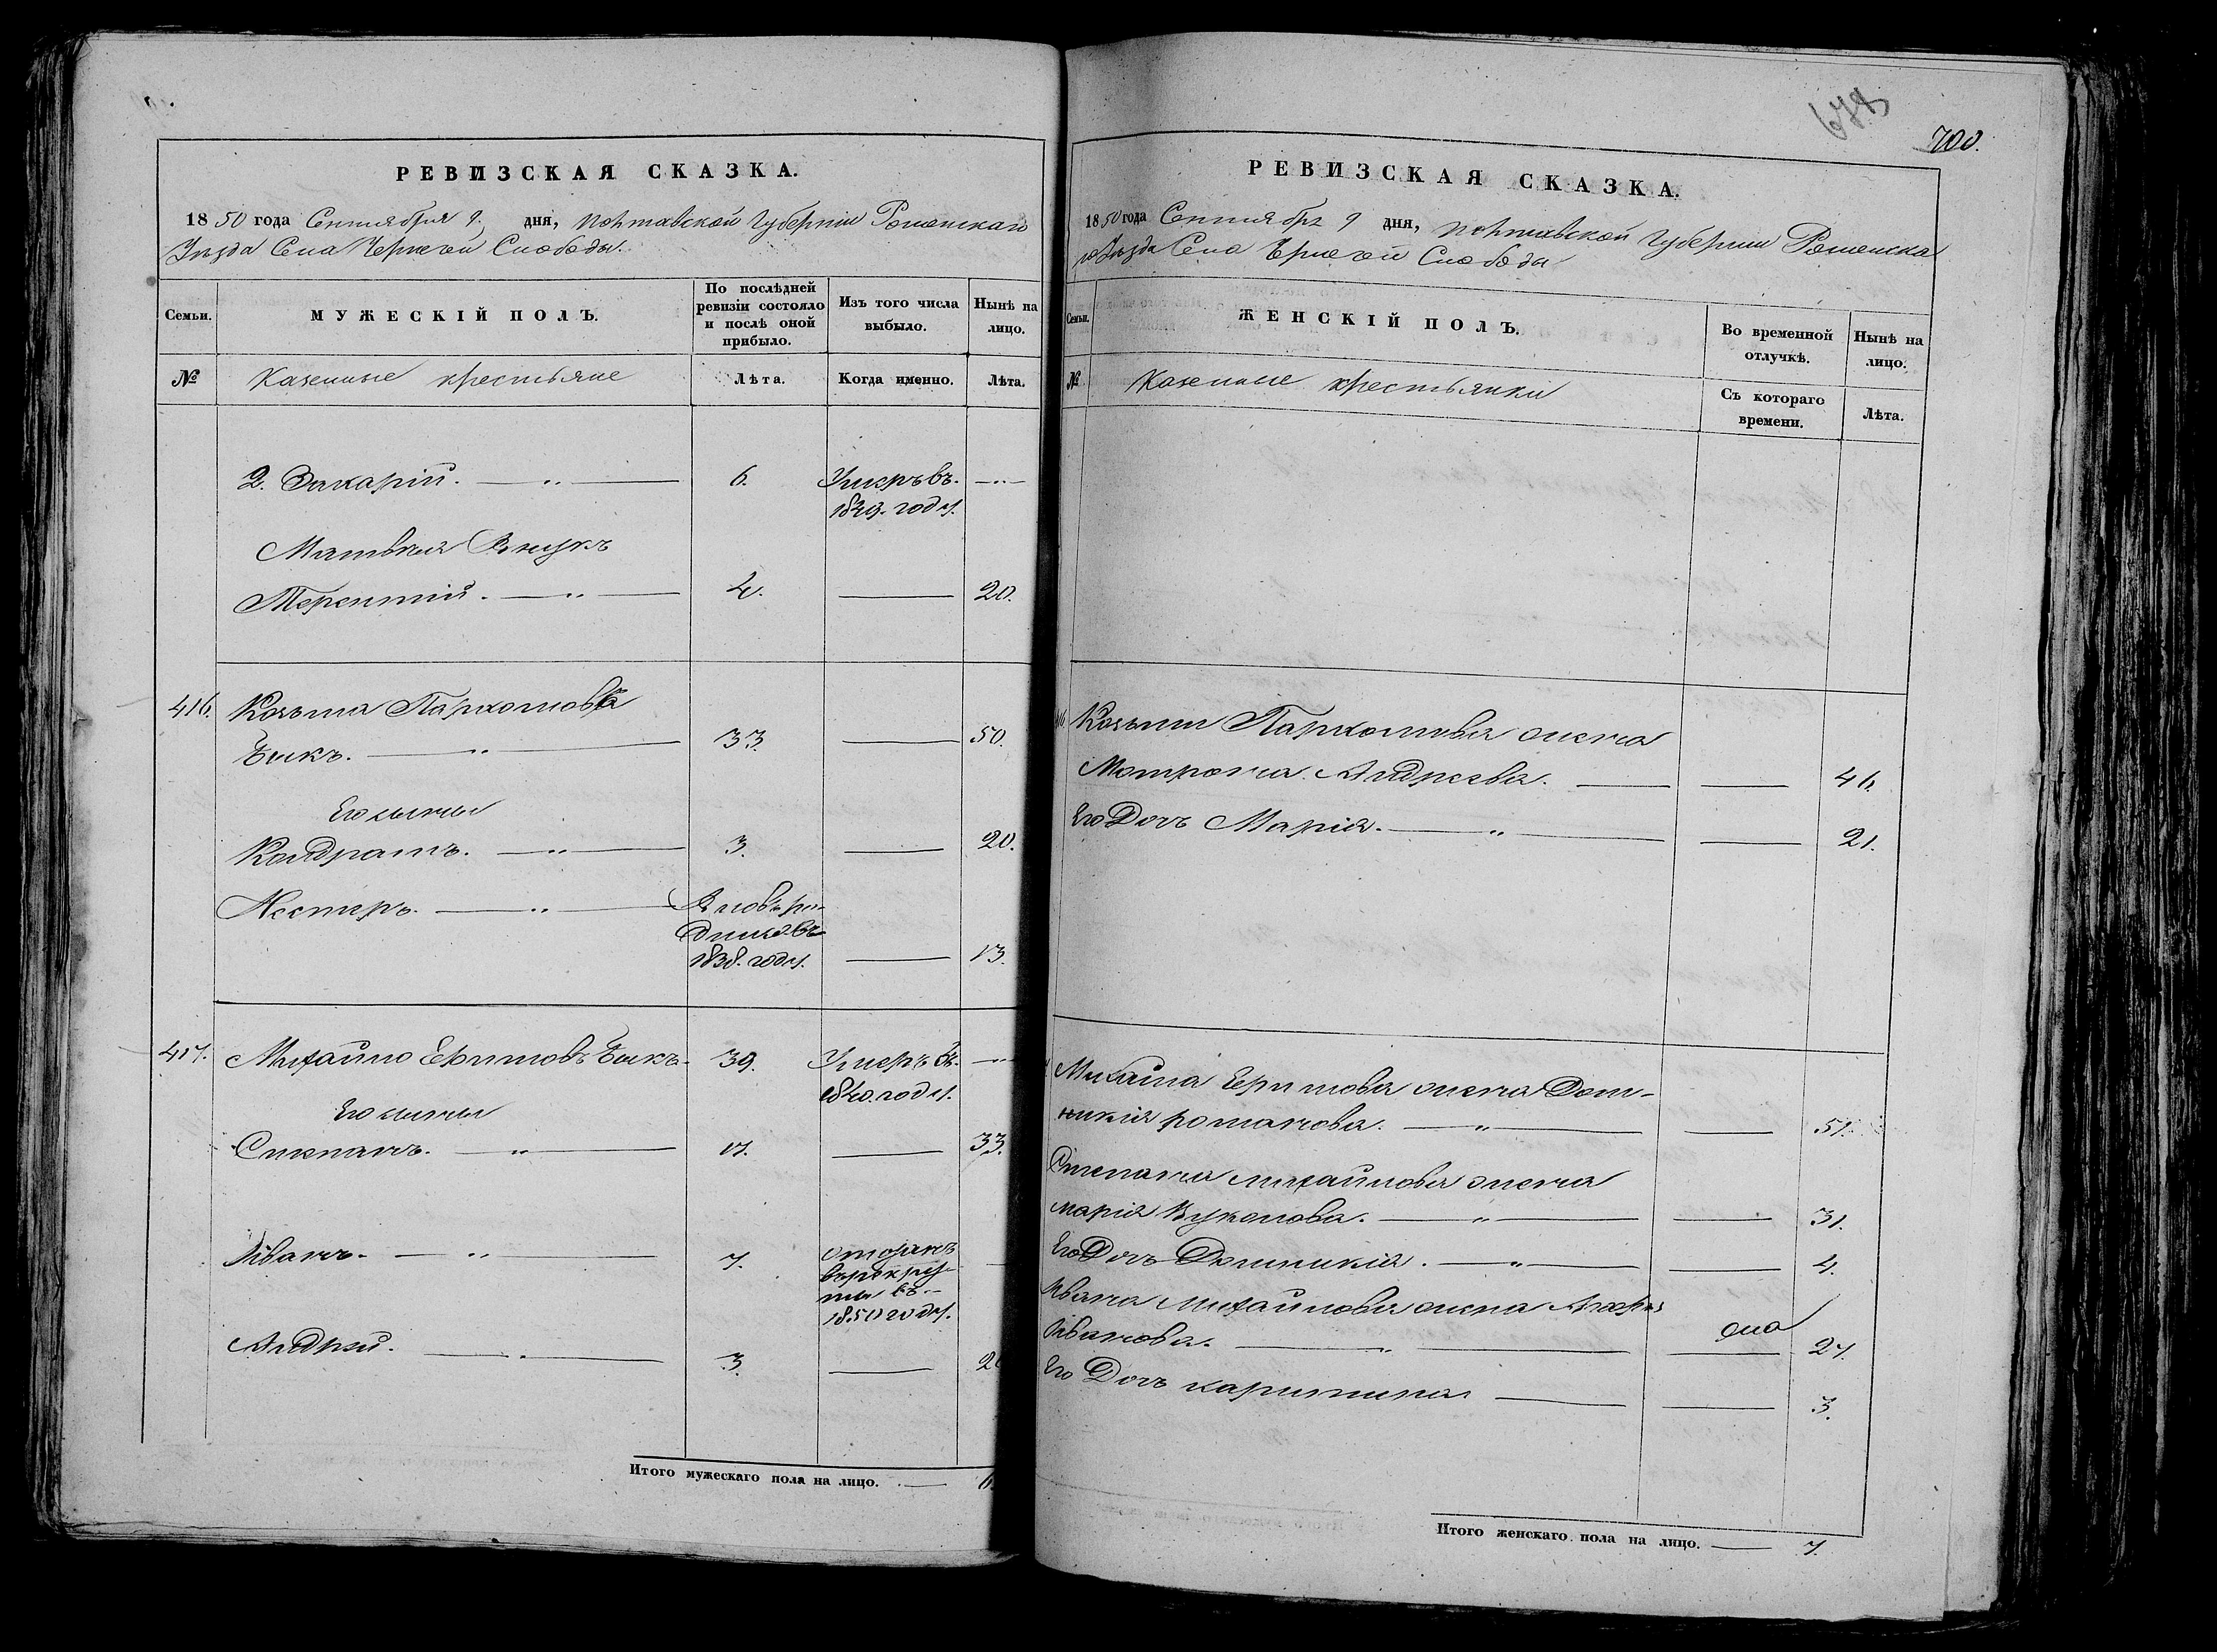 РЕВИЗСКАЯ СКАЗКА.
1850 года Сентября 9. дня, Полтавской Губернии Роменскаго
Уезда Села Черневой Слободы.
Семьи.
МУЖЕСКІЙ ПОЛЪ.
По послѣдней ревизіи состояло и послѣ оной прибыло.
Изъ того числа выбыло.
Нынѣ на лицо.
№
Казенные крестьяне
Лѣта.
Когда именно.
Лѣта.
2. Захарій. 6. Умеръ въ
1849. году.
Матвѣя Внукъ
Терентій. 4. 20.
416. Козьма Пархомовъ
Быкъ. 33. 50.
Его сыны
Кондратъ. 3. 20.
Нестеръ. Вновь ро-
дился въ
1838. году. 13.
417. Михайло Ефимовъ Быкъ. 39. Умеръ въ
1840. году.
Его сыны
Степанъ. 17. 33.
Иванъ. 7. отданъ
въ рекру-
ты въ
1850 году.
Андрей. 3. 20
Итого мужескаго пола на лицо. 6.
678
700.
РЕВИЗСКАЯ СКАЗКА.
1850 года Сентября 9 дня, Полтавской Губернии Роменска
го Уезда Села Черневой Слободы
Семьи.
ЖЕНСКІЙ ПОЛЪ.
Во временной отлучкѣ.
Нынѣ на лицо.
№
Казенные крестьянки
Съ котораго времени.
Лѣта.
Козьмы Пархомова жена
Мотрона Андреева. 46.
Его Дочь Марія. 21.
Михайла Ефимова жена Дом-
никія романова. 51.
Степана михайлова жена
марія Вуколова. 31.
Его Дочь Домникія. 4.
Ивана Михайлова жена
Иванова. 27.
Его Дочь 3.
Итого женскаго пола на лицо. 7.